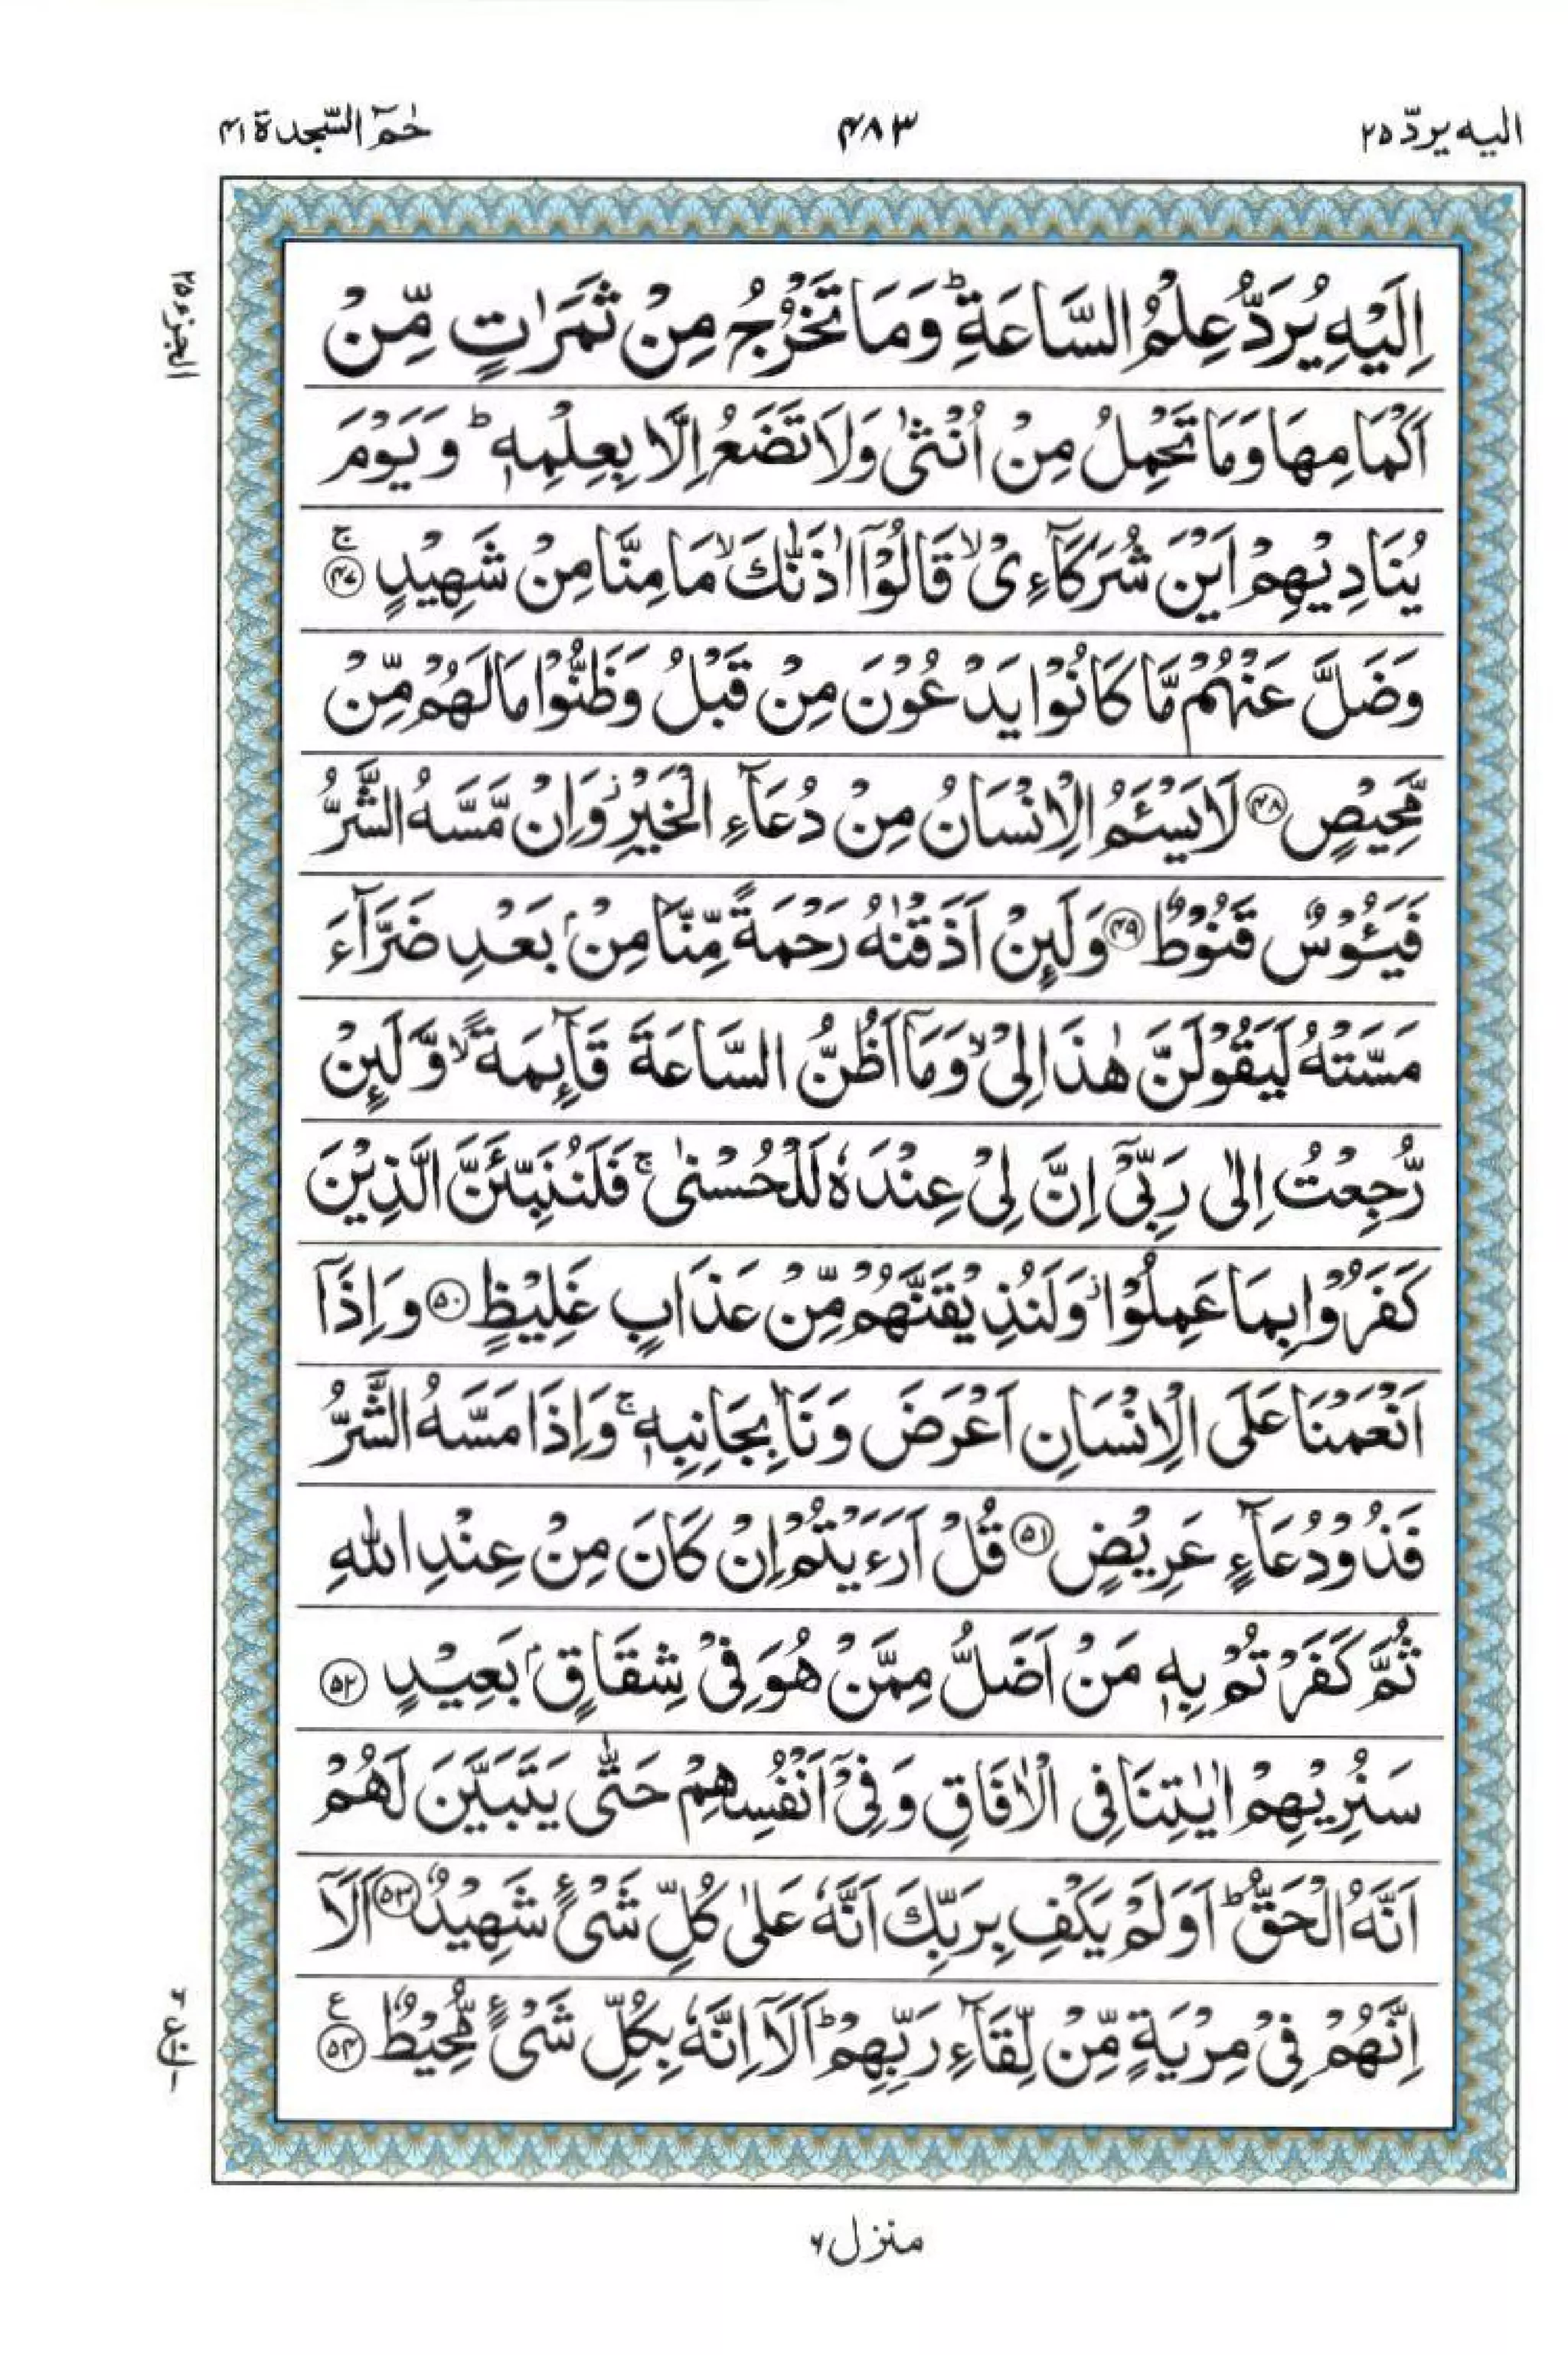 الیه یردّ ۲۵
۴۸۳
حٰمٓ السّجدة ۴۱
الجزء ۲۵
اِلَيْهِ يُرَدُّ عِلْمُ السَّاعَةِ ؕ وَمَا تَخْرُجُ مِنْ ثَمَرٰتٍ مِّنْ
اَكْمَامِهَا وَمَا تَحْمِلُ مِنْ اُنْثٰى وَلَا تَضَعُ اِلَّا بِعِلْمِهٖ ؕ وَيَوْمَ
يُنَادِيْهِمْ اَيْنَ شُرَكَآءِىْ ۙ قَالُوْٓا اٰذَنّٰكَ ۙ مَا مِنَّا مِنْ شَهِيْدٍ ۚ ۴۷
وَضَلَّ عَنْهُمْ مَّا كَانُوْا يَدْعُوْنَ مِنْ قَبْلُ وَظَنُّوْا مَا لَهُمْ مِّنْ
مَّحِيْصٍ ۴۸ لَا يَسْئَمُ الْاِنْسَانُ مِنْ دُعَآءِ الْخَيْرِ ۫ وَاِنْ مَّسَّهُ الشَّرُّ
فَيَئُوْسٌ قَنُوْطٌ ۴۹ وَلَئِنْ اَذَقْنٰهُ رَحْمَةً مِّنَّا مِنْۢ بَعْدِ ضَرَّآءَ
مَسَّتْهُ لَيَقُوْلَنَّ هٰذَا لِىْ ۙ وَمَآ اَظُنُّ السَّاعَةَ قَآئِمَةً ۙ وَّلَئِنْ
رُّجِعْتُ اِلٰى رَبِّىْٓ اِنَّ لِىْ عِنْدَهٗ لَلْحُسْنٰى ۚ فَلَنُنَبِّئَنَّ الَّذِيْنَ
كَفَرُوْا بِمَا عَمِلُوْا ۫ وَلَنُذِيْقَنَّهُمْ مِّنْ عَذَابٍ غَلِيْظٍ ۵۰ وَاِذَآ
اَنْعَمْنَا عَلَى الْاِنْسَانِ اَعْرَضَ وَنَاٰ بِجَانِبِهٖ ۚ وَاِذَا مَسَّهُ الشَّرُّ
فَذُوْ دُعَآءٍ عَرِيْضٍ ۵۱ قُلْ اَرَءَيْتُمْ اِنْ كَانَ مِنْ عِنْدِ اللّٰهِ
ثُمَّ كَفَرْتُمْ بِهٖ مَنْ اَضَلُّ مِمَّنْ هُوَ فِىْ شِقَاقٍۢ بَعِيْدٍ ۵۲
سَنُرِيْهِمْ اٰيٰتِنَا فِى الْاٰفَاقِ وَفِىْٓ اَنْفُسِهِمْ حَتّٰى يَتَبَيَّنَ لَهُمْ
اَنَّهُ الْحَقُّ ؕ اَوَلَمْ يَكْفِ بِرَبِّكَ اَنَّهٗ عَلٰى كُلِّ شَىْءٍ شَهِيْدٌ ۵۳ اَلَآ
اِنَّهُمْ فِىْ مِرْيَةٍ مِّنْ لِّقَآءِ رَبِّهِمْ ؕ اَلَآ اِنَّهٗ بِكُلِّ شَىْءٍ مُّحِيْطٌ ۵۴ ع
منزل ۶